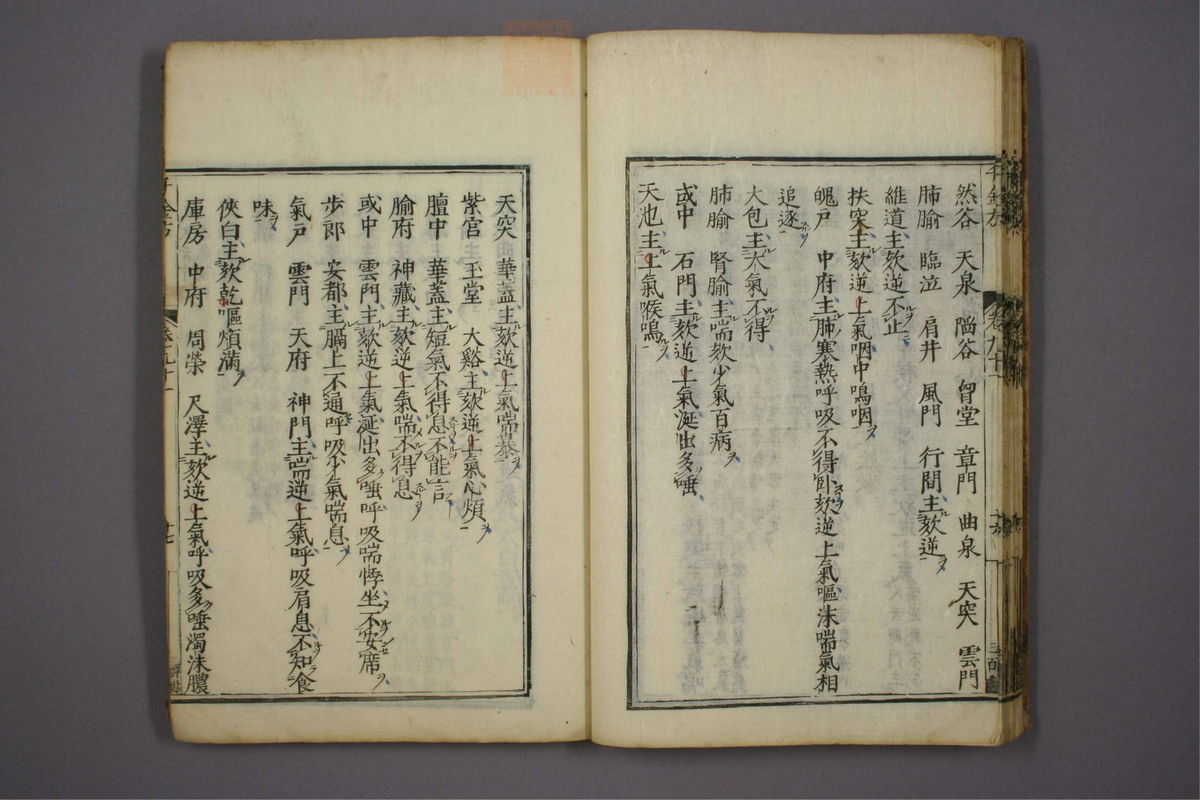 然谷　天泉　陷谷　胷堂　章門　曲泉　天突　雲門
肺腧　臨泣　肩井　風門　行間主欬逆
維道主欬逆不止
扶突主欬逆上氣咽中鳴咽
魄戶　中府主肺寒熱呼吸不得卧欬逆上氣嘔沫喘氣相
追逐
大包主大氣不得
肺腧　腎腧主喘欬少氣百病
或中　石門主欬逆上氣涎出多唾
天池主上氣喉鳴
天突　華蓋主欬逆上氣喘暴
紫宮　玉堂　大谿主欬逆上氣心煩
膻中　華蓋主短氣不得息不能言
腧府　神藏主欬逆上氣喘不得息
或中　雲門主欬逆上氣涎出多唾呼吸喘悸坐不安席
步郎　安都主膈上不通呼吸少氣喘息
氣戶　雲門　天府　神門主喘逆上氣呼吸肩息不知食
味
俠白主欬乾嘔煩滿
庫房　中府　周榮　尺澤主欬逆上氣呼吸多唾濁沫膿